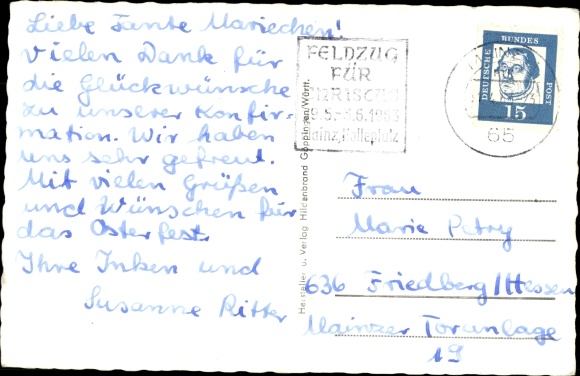 Liebe Tante Mariechen!
Vielen Dank für
die Glückwünsche
zu unserer Konfir-
mation. Wir haben
uns sehr gefreut.
Mit vielen Grüßen
und Wünschen für
das Osterfest.
Ihre Inken und
Susanne Ritter
FELDZUG
FÜR
CHRISTUS
1963
Mainz, Halleplatz
DEUTSCHE BUNDESPOST
15
65
Hersteller u. Verlag Hildenbrand Göppingen/Württ.
Frau
Marie Petry
636 Friedberg/Hessen
Mainzer Toranlage
19